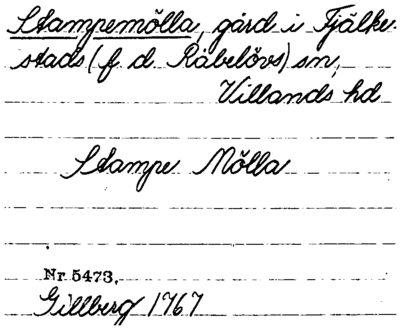 Stampemölla, gård i Fjälke-
stads (f d Räbelövs) sn,
Villands hd
Stampe Mölla
Nr 5473,
Gillberg 1767